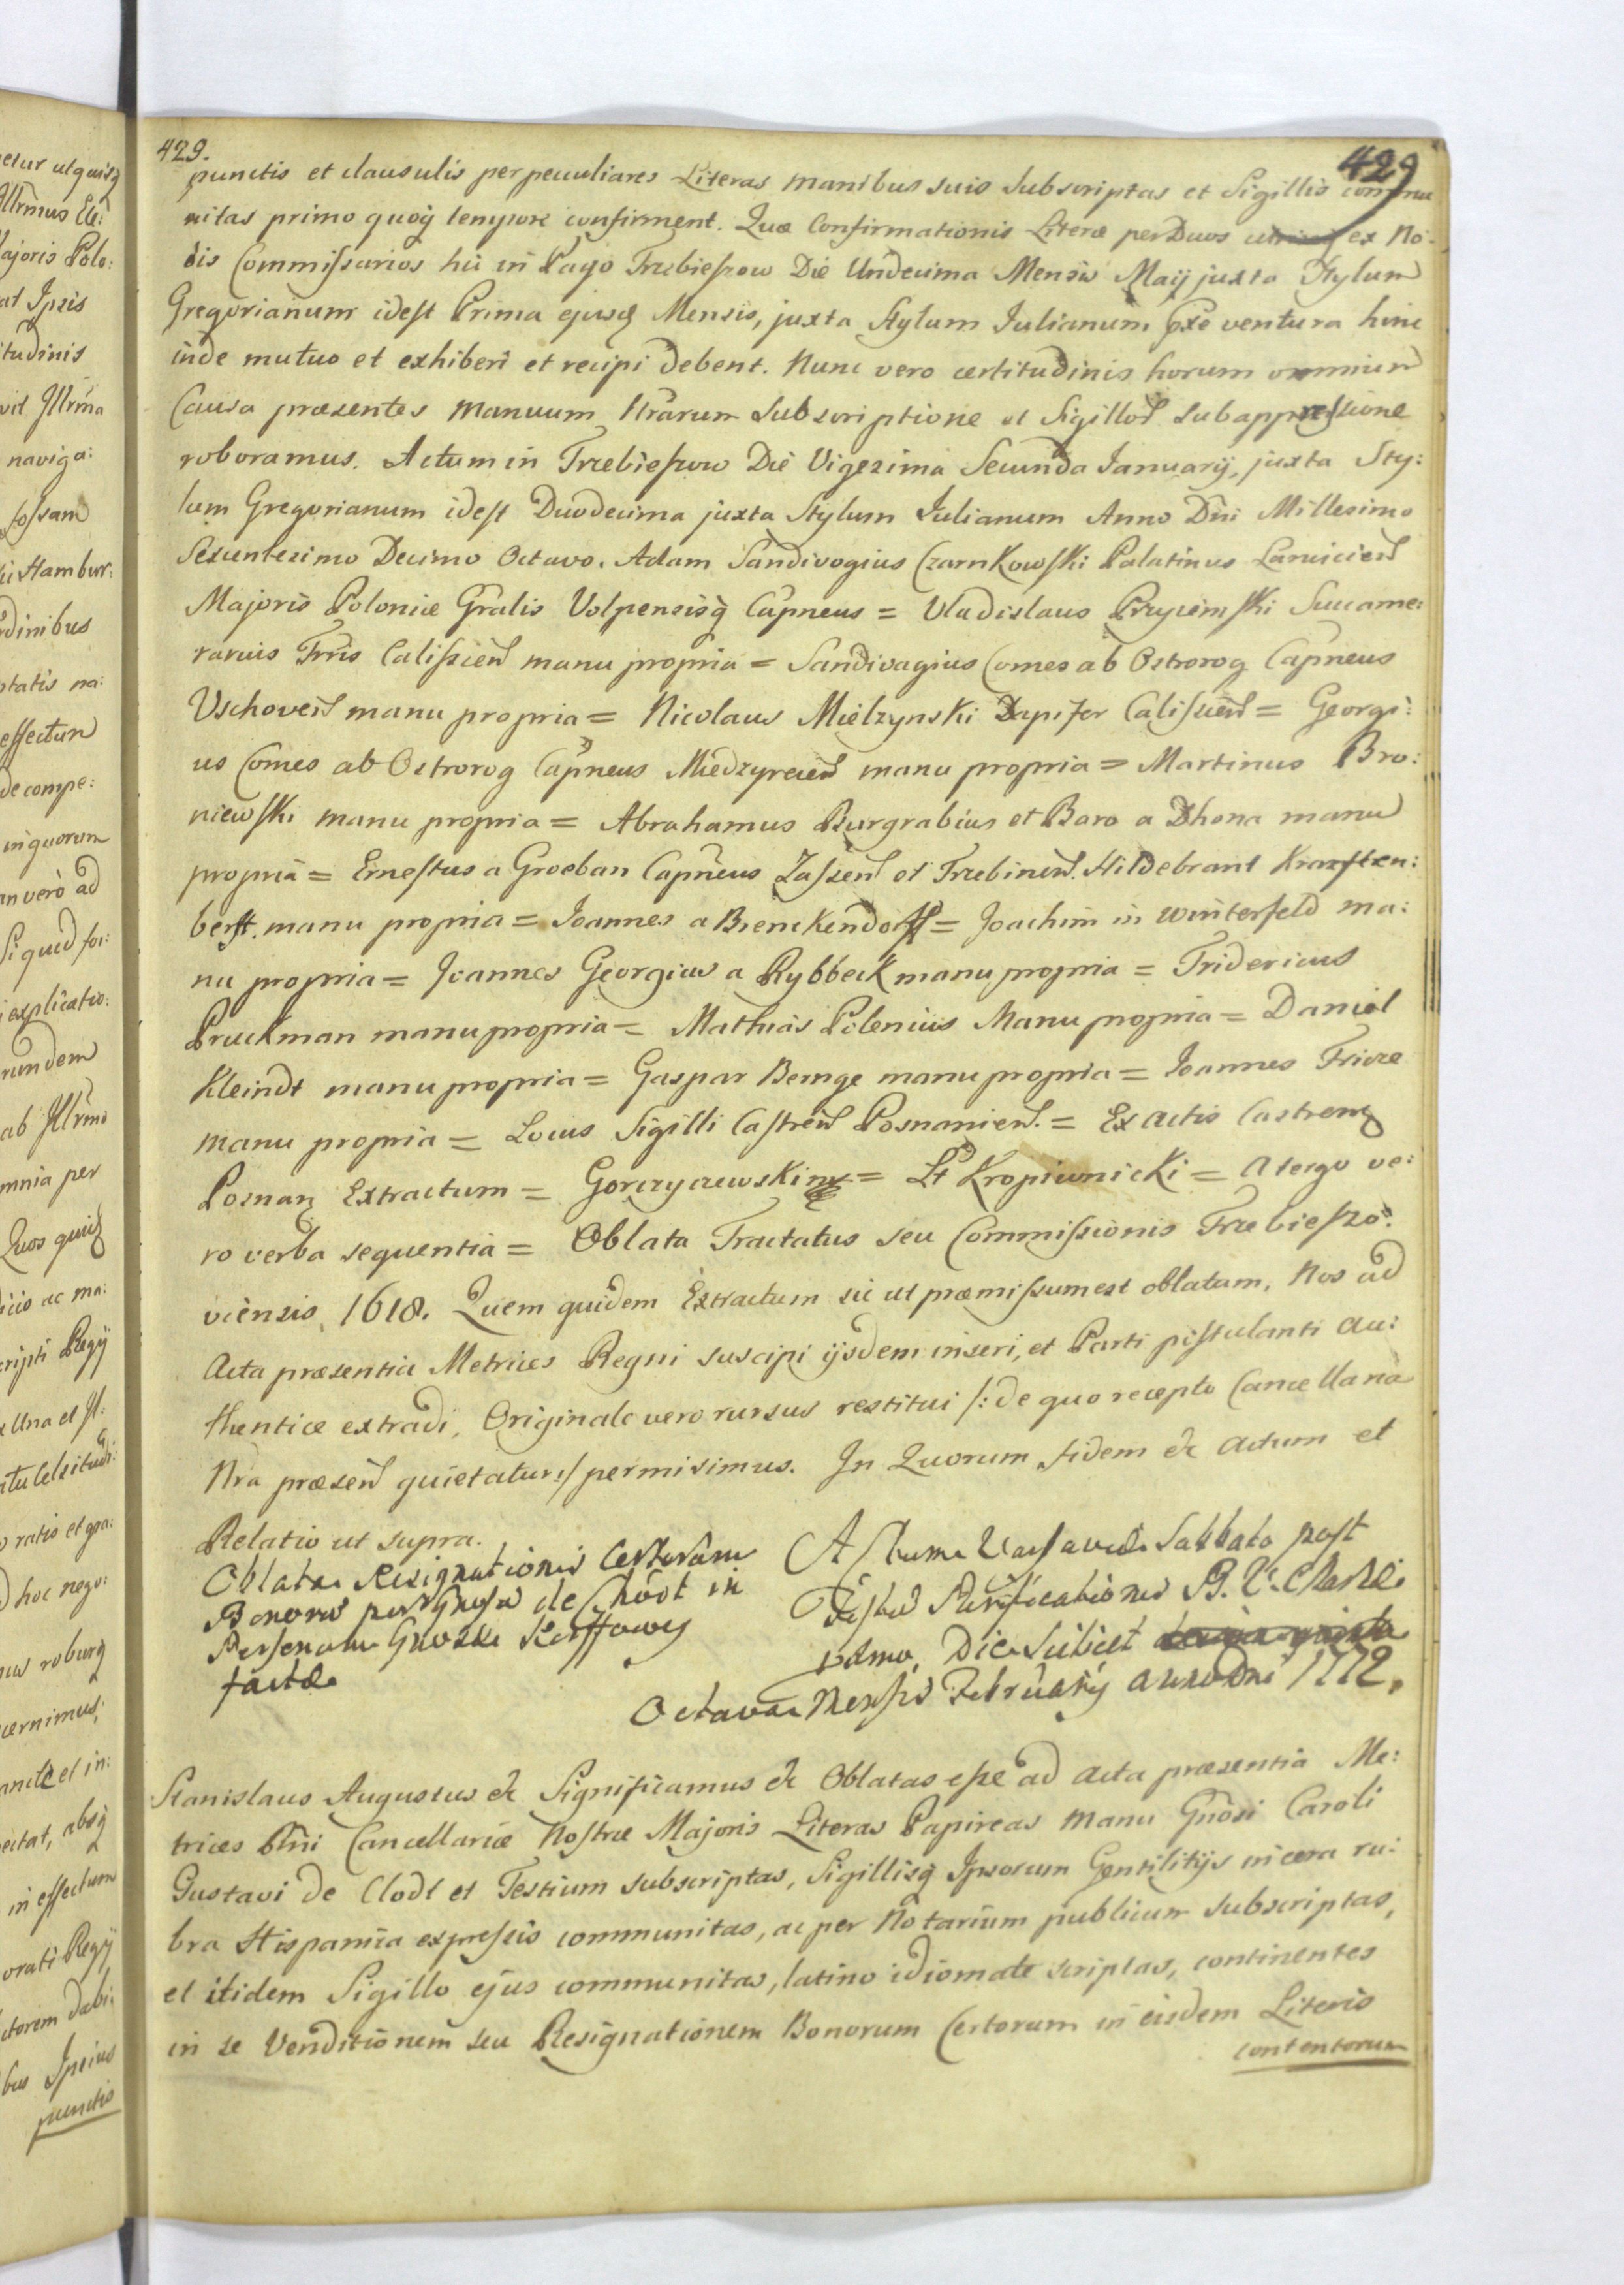 429.
429
punctis et clausulis per peculiares Literas manibus suis subscriptas et Sigillis commu
nitas primo quoq tempore confirment. Quæ Confirmationis Literæ per Duos ex No:
bis Commissarios hic in Pago Trzebieszow Die Undecima Mensis Maij juxta Stylum
Gregorianum idest Prima ejusq Mensis, juxta Stylum Iulianum pxe ventura hinc
inde mutuo et exhiberi et recipi debent. Nunc vero certitudinis horum omnium
Causa præsentes manuum Nrarum subscriptione et Sigillor subappressione
roboramus. Actum in Trzebieszow Die Vigesima Secunda Ianuarij, juxta Sty:
lum Gregorianum idest Duodecima juxta Stylum Iulianum Anno Dni Millesimo
Sexcentesimo Decimo Octavo. Adam Sandivogius Czarnkowski Palatinus Lancicien
Majoris Poloniæ Gralis Volpensisq Capneus = Uladislaus Przyiemski Succame:
rarius Trris Calissien manu propria = Sandivagius Comes ab Ostrorog Capneus
Vschoven manu propria = Nicolaus Mielzynski Dapifer Calissien = Georgi:
us Comes ab Ostrorog Capneus Miedzyrecien manu propria = Martinus Bro:
niewski manu propria = Abrahamus Burgrabius et Baro a Dhona manu
propria = Ernestus a Groeban Capneus Zassen et Trzebinen. Hildebrant Krarften:
berft. manu propria = Ioannes a Brenckendorff = Joachim in Winterfeld ma:
nu propria = Joannes Georgius a Rybbeck manu propria = Fridericus
Pruckman manu propria = Mathias Polenius Manu propria = Daniel
Kleindt manu propria = Gaspar Bernge manu propria = Ioannes Fricze
manu propria = Locus Sigilli Castren Posnanien. = Ex Actis Castren
Posnan Extractum = Gorczyczewski = Lt Kropiwnicki = A tergo ve:
ro verba sequentia = Oblata Tractatus seu Commissionis Trzebieszo:
viensis 1618. Quem quidem Extractum sic ut præmissum est oblatam, Nos ad
Acta præsentia Metrices Regni suscipi ijsdem inseri, et Parti postulanti au:
thentice extradi, Originale vero rursus restitui /: de quo recepto Cancellaria
Nra præsen quietatur :/ permisimus. In Quorum fidem &c Actum et
Relatio ut supra.
Oblata Resignationis Certorum
Bonoru per Gnosu de Chodt in
Personam Gnoski Korffowey
factæ
Actum Varsaviæ Sabbato post
Festu Purificationis B. V. Mariæ
pdmo, Die Scilicet
Octava Mensis February anno Dni 1772.
Stanislaus Augustus &c Significamus &c Oblatas esse ad Acta præsentia Me:
trices Rni Cancellariæ Nostræ Majoris Literas Papireas manu Gnosi Caroli
Gustavi de Clodt et Testium subscriptas, Sigillisq Ipsorum Gentilitijs in cera ru:
bra Hispanica expressis communitas, ac per Notarium publicum subscriptas,
et itidem Sigillo ejus communitas, latino idiomate scriptas, continentes
in se Venditionem seu Resignationem Bonorum Certorum in eisdem Literis
contentorum